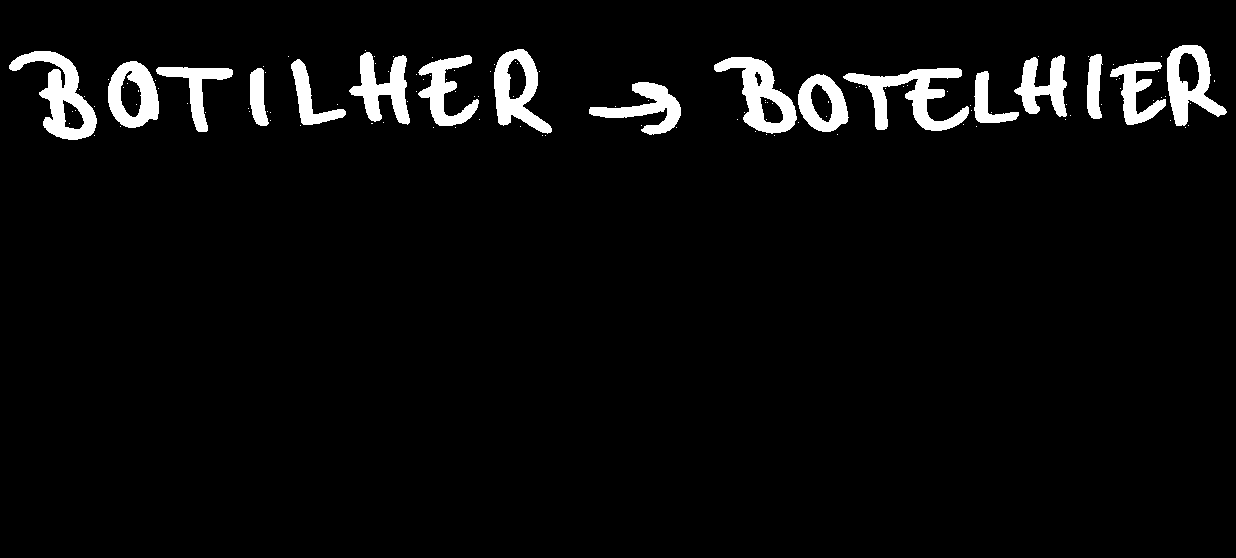 BOTILHER → BOTELHIER